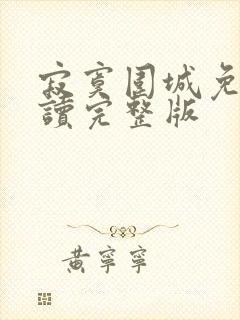 寂寞圍城免
讀完整版
黃寧寧